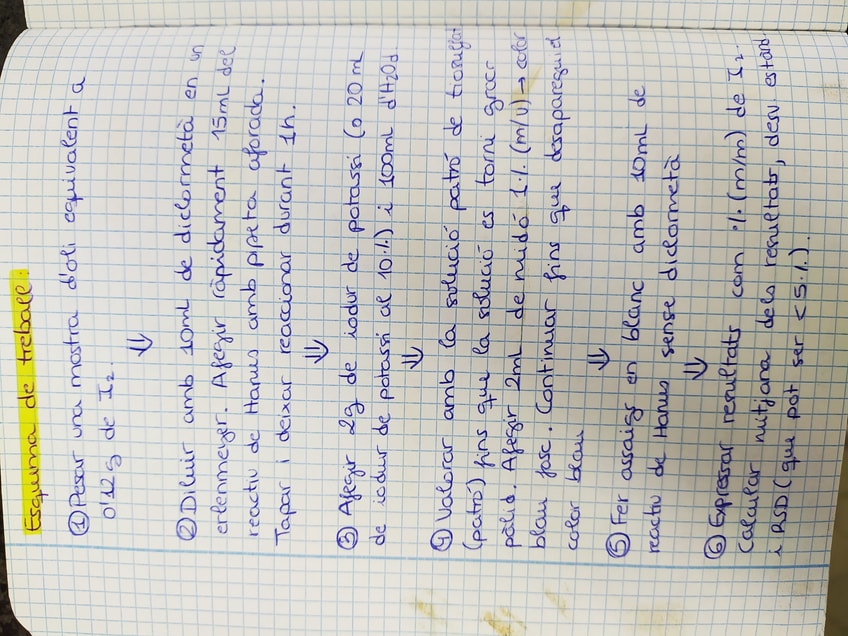 Esquema de treball:
① Pesar una mostra d'oli equivalent a
0'12g de I₂
⇓
② Diluir amb 10mL de diclormetà en un
erlenmeyer. Afegir ràpidament 15mL del
reactiu de Hanus amb pipeta aforada.
Tapar i deixar reaccionar durant 1h.
⇓
③ Afegir 2g de iodur de potassi (o 20 mL
de iodur de potassi al 10%) i 100mL d'H₂Od
⇓
④ Valorar amb la solució patró de tiosulfat
(patró) fins que la solució es torni groc
pàlid. Afegir 2mL de midó 1% (m/v) → color
blau fosc. Continuar fins que desaparegui el
color blau
⇓
⑤ Fer assaigs en blanc amb 10mL de
reactiu de Hanus sense diclormetà
⇓
⑥ Expressar resultats com % (m/m) de I₂.
Calcular mitjana dels resultats, desv. estànd.
i RSD (que pot ser <5%).